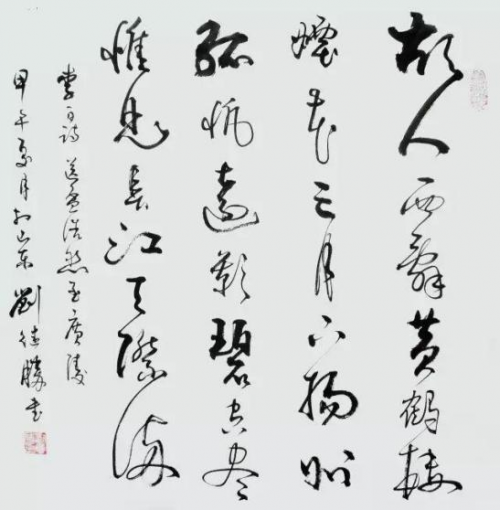 故人西辭黄鶴楼
煙花三月下揚州
孤帆遠影碧空尽
惟見長江天際流
李白詩 送孟浩然至廣陵
甲午夏月於山東 劉德勝書